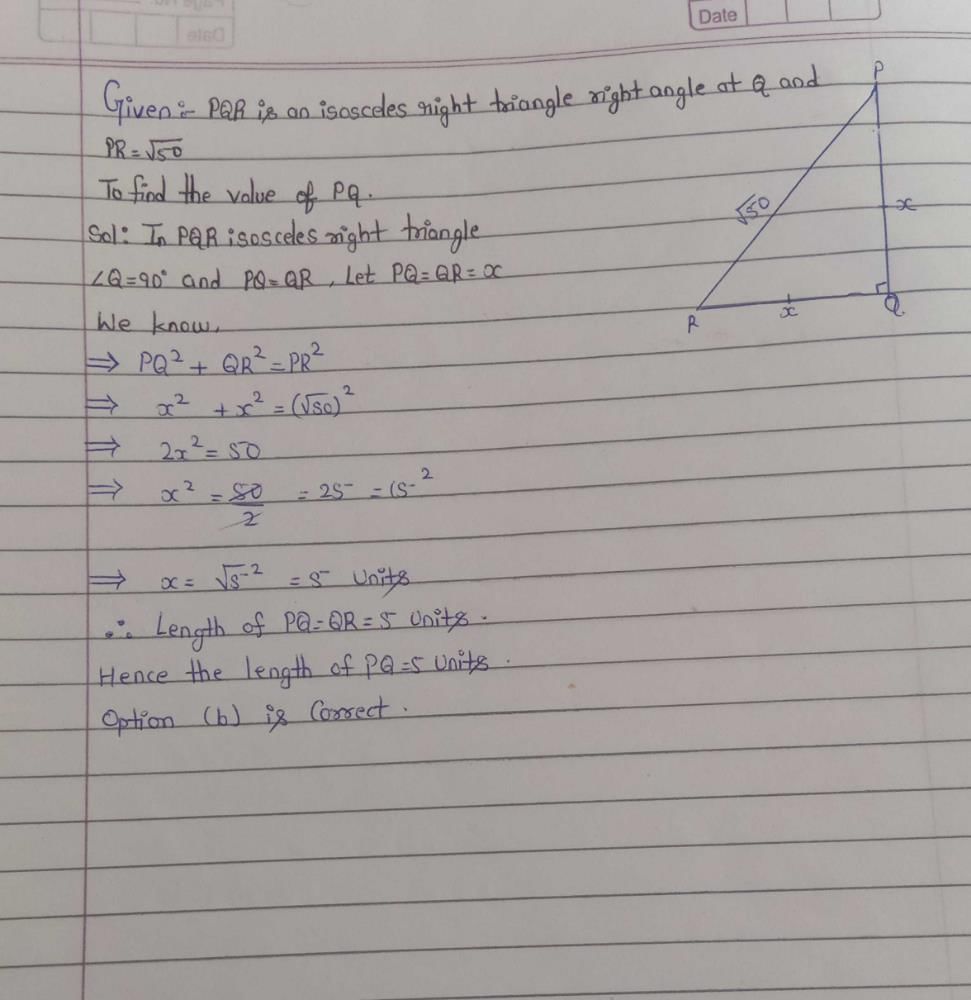 Date
Given :- PQR is an isosceles right triangle right angle at Q and
PR = √50
To find the value of PQ.
Sol: In PQR isosceles right triangle
∠Q=90° and PQ=QR, Let PQ=QR=x
We know,
⇒ PQ² + QR² = PR²
⇒ x² + x² = (√50)²
⇒ 2x² = 50
⇒ x² = 50/2 = 25 = (5²
⇒ x = √5² = 5 Units
∴ Length of PQ=QR=5 Units.
Hence the length of PQ=5 Units.
Option (b) is Correct.
P
√50
x
R
x
Q